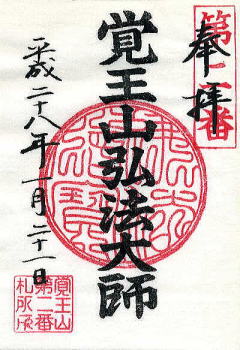 第二番
奉拝
覚王山弘法大師
平成二十八年一月二十一日
覚王山
第二番
札所